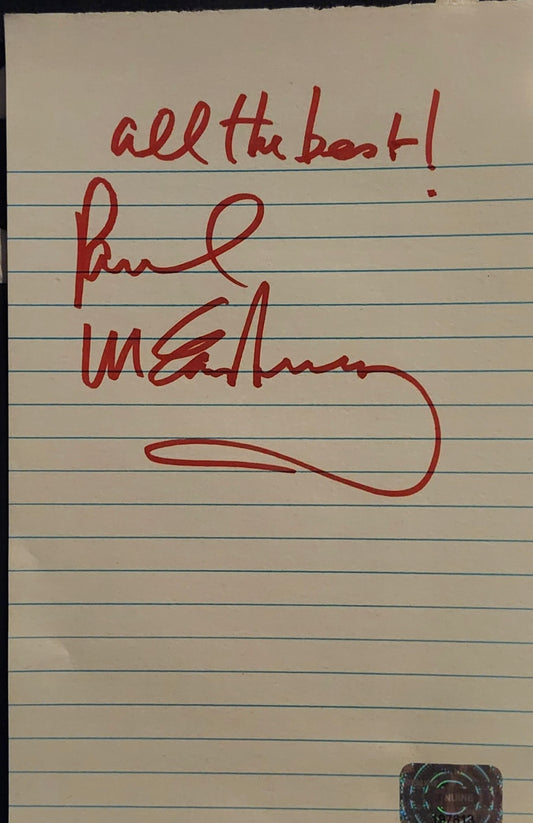 all the best!
Paul
McCartney
GENUINE